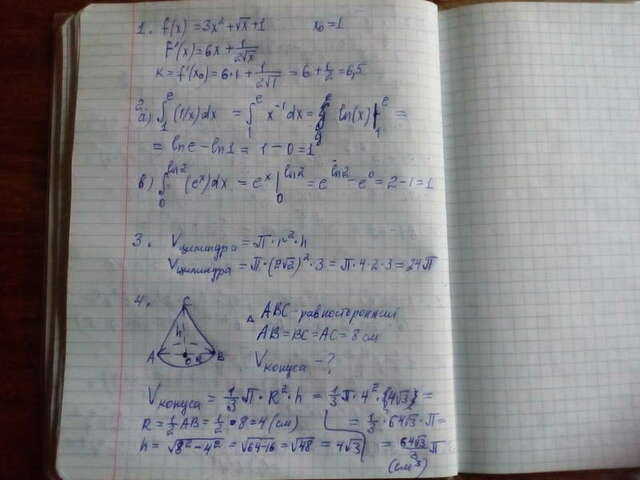 1. f(x) = 3x² + √x + 1    x₀ = 1
f'(x) = 6x + 1/(2√x)
k = f'(x₀) = 6·1 + 1/(2√1) = 6 + 1/2 = 6,5
2. а) ∫₁ᵉ (1/x)dx = ∫₁ᵉ x⁻¹ dx = ln(x) |₁ᵉ =
= ln e − ln 1 = 1 − 0 = 1
в) ∫₀^ln2 (eˣ)dx = eˣ |₀^ln2 = e^ln2 − e⁰ = 2 − 1 = 1
3. Vцилиндра = π · r² · h
Vцилиндра = π · (2√2)² · 3 = π · 4 · 2 · 3 = 24π
4. C
△ ABC - равносторонний
h
AB = BC = AC = 8 см
A O R B
Vконуса - ?
Vконуса = 1/3 π · R² · h = 1/3 π · 4² · (4√3) =
R = 1/2 AB = 1/2 · 8 = 4 (см)    = 1/3 · 64√3 · π =
h = √(8² − 4²) = √(64−16) = √48 = 4√3    = 64√3/3 π
(см³)